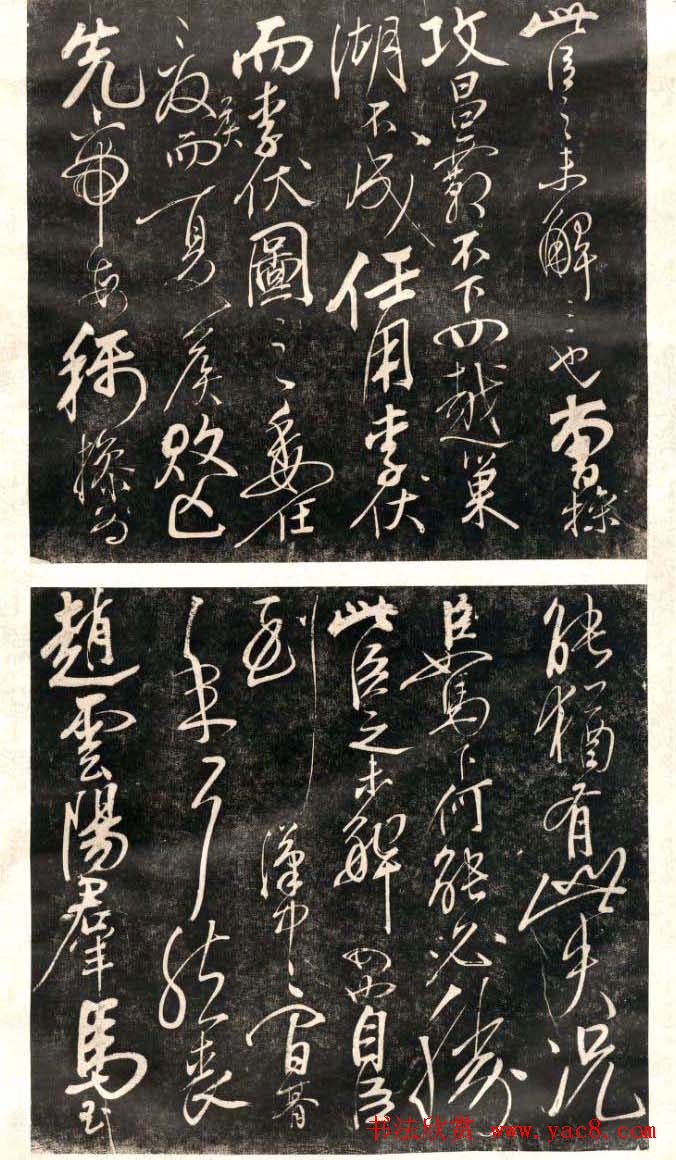 此臣之未解三也曹操
攻昌霸不下四越巢
湖不成任用李伏
而李伏圖之委任
夏侯而夏侯敗亡
先帝每稱操為
能猶有此失況
臣駑下何能必勝
此臣之未解四也自臣
到漢中中間朞
年耳然喪
趙雲陽羣馬玉
书法欣赏 www.yac8.com